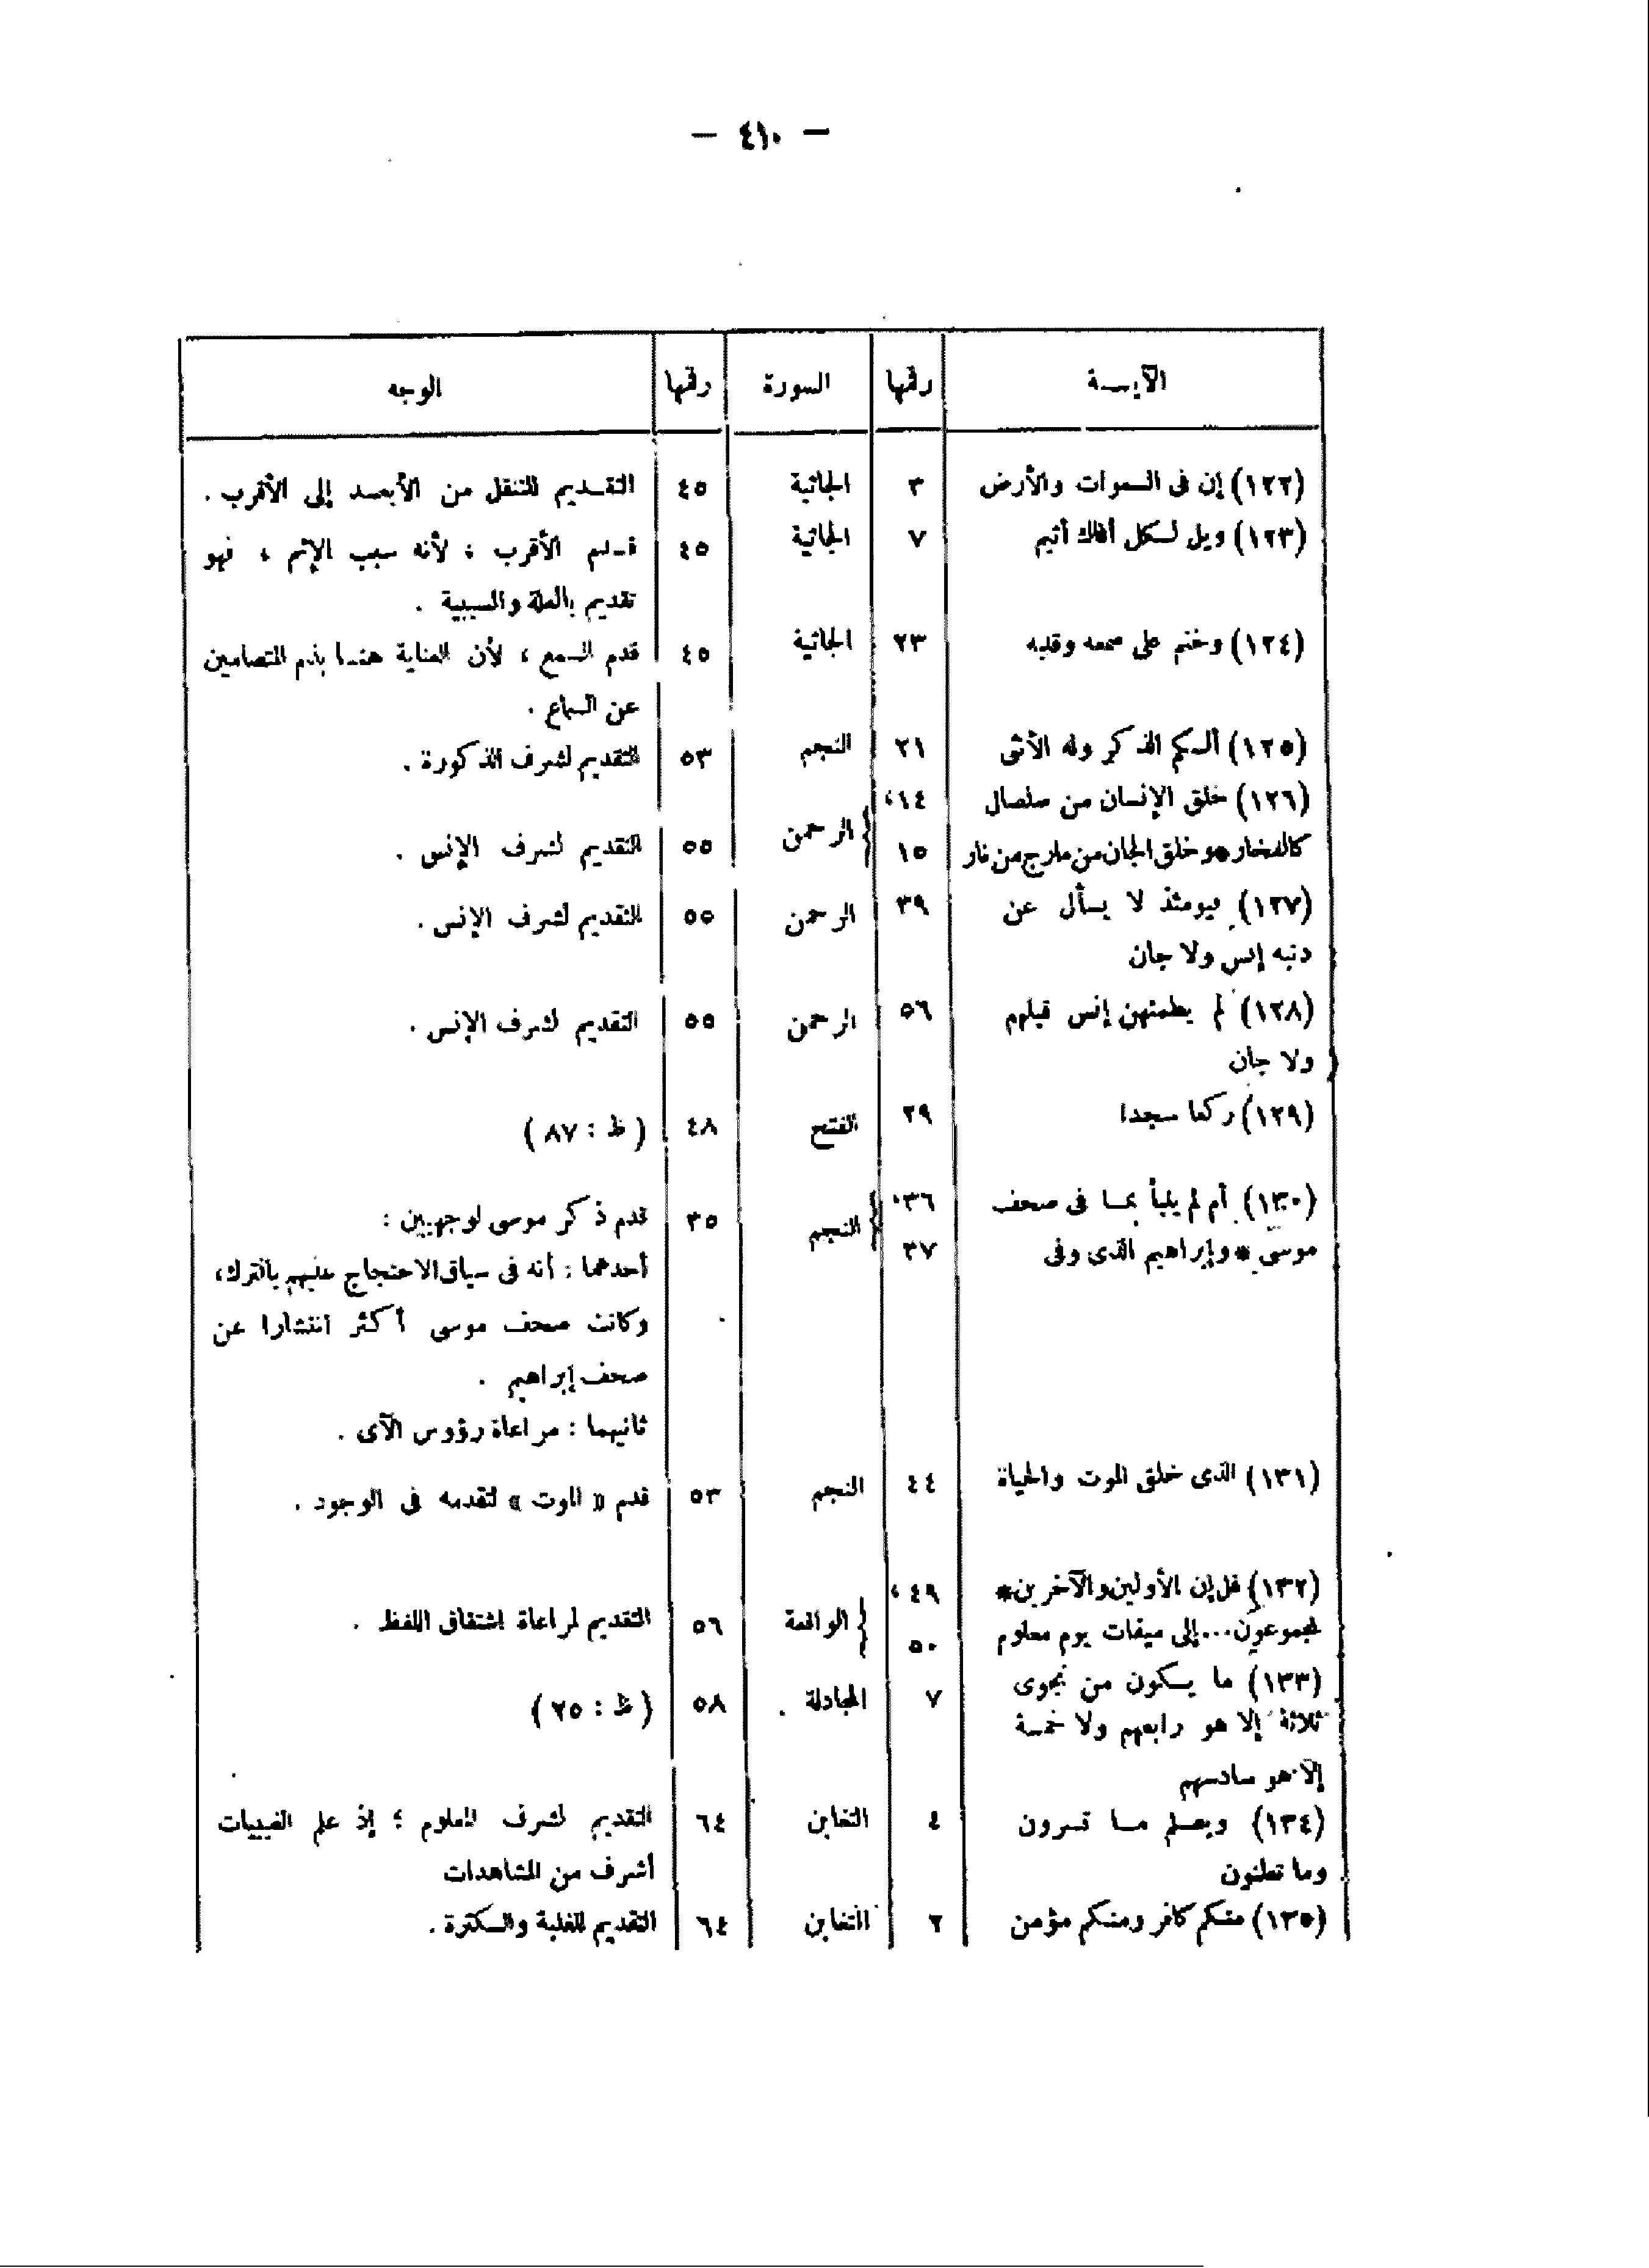 — ٤١٠ —
الآيـــة رقمها السورة رقمها الوجه
(١٢٢) إن فى السموات والأرض ٣ الجاثية ٤٥ التقـديم للتنقل من الأبعـد إلى الأقرب .
(١٢٣) ويل لكل أفاك أثيم ٧ الجاثية ٤٥ قـدم الأقرب ؛ لأنه سبب الإثم ، فهو
تقديم بالعلة والسببية .
(١٢٤) وختم على سمعه وقلبه ٢٣ الجاثية ٤٥ قدم السمع ، لأن العناية هنـا بذم المتصامين
عن السماع .
(١٢٥) ألكم الذكر وله الأنثى ٢١ النجم ٥٣ التقديم لشرف الذكورة .
(١٢٦) خلق الإنسان من صلصال ١٤،
كالفخار*وخلق الجان من مارج من نار ١٥ الرحمن ٥٥ التقديم لشرف الإنس .
(١٢٧) فيومئذ لا يسأل عن ٣٩ الرحمن ٥٥ التقديم لشرف الإنس .
ذنبه إنس ولا جان
(١٢٨) لم يطمثهن إنس قبلهم ٥٦ الرحمن ٥٥ التقديم لشرف الإنس .
ولا جان
(١٢٩) ركعا سجدا ٢٩ الفتح ٤٨ ( ظ : ٨٧ )
(١٣٠) أم لم ينبأ بمـا فى صحف ٣٦، النجم ٣٥ قدم ذكر موسى لوجهين :
موسى * وإبراهيم الذى وفى ٣٧ أحدهما : أنه فى سياق الاحتجاج عليهم بالترك،
وكانت صحف موسى أكثر انتشارا عن
صحف إبراهيم .
ثانيهما : مراعاة رؤوس الآى .
(١٣١) الذى خلق الموت والحياة ٤٤ النجم ٥٣ قدم « الموت » لتقدمه فى الوجود .
(١٣٢) قل إن الأولين والآخرين* ٤٩،
لمجموعون...إلى ميقات يوم معلوم ٥٠ الواقعة ٥٦ التقديم لمراعاة اشتقاق اللفظ .
(١٣٣) ما يكون من نجوى ٧ المجادلة . ٥٨ ( ظ : ٢٥ )
ثلاثة إلا هو رابعهم ولا خمسة
إلا هو سادسهم
(١٣٤) ويعـلم مـا تسرون ٤ التغابن ٦٤ التقديم لشرف المعلوم ؛ إذ علم الغيبيات
وما تعلنون أشرف من المشاهدات
(١٣٥) منكم كافر ومنكم مؤمن ٢ التغابن ٦٤ التقديم للغلبة والكثرة .